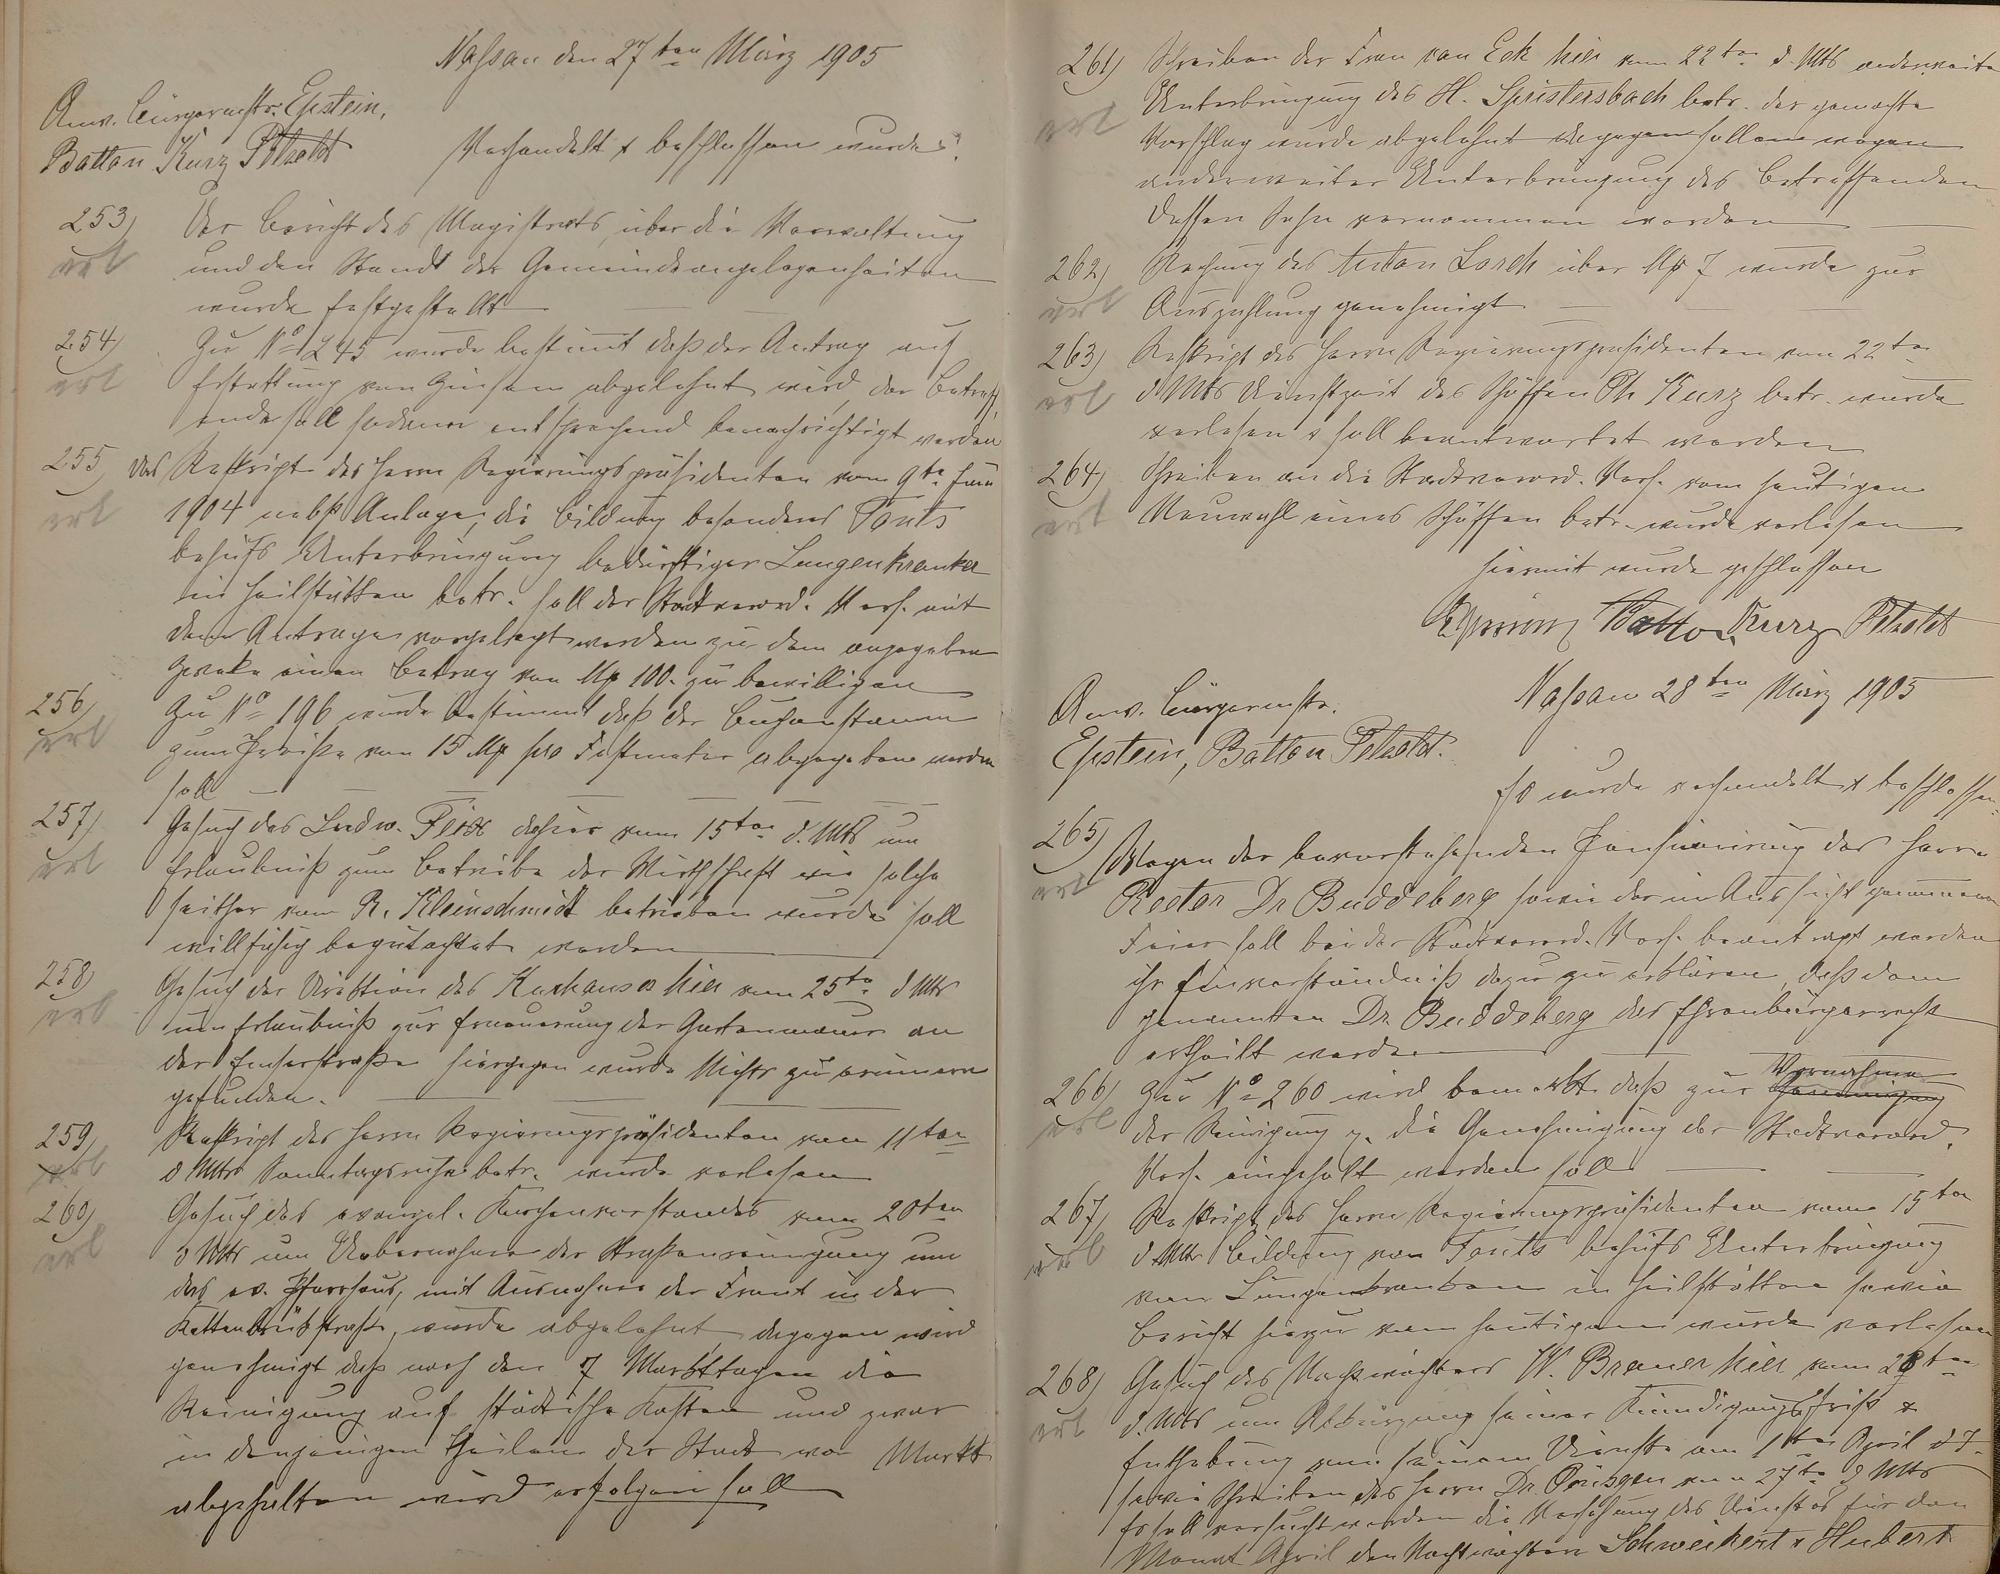 Nassau den 27ten März 1905
Anw. Bürgermstr. Epstein,
Batton Kurz Petzoldt
Verhandelt & beschlossen wurde:
253) Der Bericht des Magistrats, über die Verwaltung
erl und den Standt der Gemeindeangelegenheiten
wurde festgestellt
254) Zu No 245 wurde bestimt daß der Antrag auf
erl Erstattung von Zinsen abgelehnt wird, der Betreff
ende soll hiervon entsprechend benachrichtigt werden
255) Das Reskript des Herrn Regierungspräsidenten vom 9ten Juni
erl 1904 nebst Anlage, die Bildung besonderes Fonts
behufs Unterbringung bedürftiger Lungenkranker
in Heilstätten betr. soll der Stadtverord. Vers. mit
dem Antrage vorgelegt werden zu dem angegeben
Zwecke einen Betrag von Mk 100.- zu bewilligen
256) Zu No 196 wurde bestimmt daß der Buchenstamm
erl zum Preiße von 15 Mk pro Festmeter abgegeben werden
soll
257) Gesuch des Ludw. dahier vom 15ten d. Mts um
erl Erlaubniß zum Betriebe der Wirthschaft wie solche
seither vom R. Kleinschmidt betrieben wurde soll
willfährig begutachtet werden
258) Gesuch der Direktion des Kurhauses hier vom 25ten d Mts
erl um Erlaubniß zur Erneuerung der Gartenmauer an
der Emserstraße hiergegen wurde Nichts zu erinnern
gefunden.
259) Reskript des Herrn Regierungspräsidenten vom 11ten
erl d Mts Sonntagsruhe betr. wurde verlesen
260) Gesuch des evangel. Kirchenvorstandes vom 20ten
erl d Mts um Uebernahme der Straßenreinigung um
das ev. Pfarrhaus, mit Ausnahme der Front in der
Kettenbrückstraße, wurde abgelehnt, dagegen wird
genehmigt daß nach den 7 Markttagen die
Reinigung auf städtische Kosten und zwar
in denjenigen Theilen der Stadt wo Markt
abgehalten wird erfolgen soll
261) Schreiben der Frau van Eck hier vom 22ten d. Mts anderweite
erl Unterbringung des H. Spristersbach betr. der gemachte
Vorschlag wurde abgelehnt dagegen soll wegen
anderweiter Unterbringung des Betreffenden
dessen Sohn vernommen werden
262) Rechnung des Anton Lorch über Mk 7 wurde zur
erl Auszahlung genehmigt
263) Reskript des Herrn Regierungspräsidenten vom 22ten
erl d Mts Dienstzeit des Schöffen Ph Kurz betr. wurde
verlesen & soll beantwortet werden
264) Schreiben an die Stadtverord. Vers. vom heutigen
erl Neuwahl eines Schöffen betr. wurde verlesen
hiermit wurde geschlossen
Epstein Batton Kurz Petzoldt
Nassau 28ten März 1905
Anw. Bürgermstr.
Epstein, Batton Petzoldt.
Es wurde verhandelt & beschlossen:
265) Wegen der bevorstehenden Pensionirung des Herrn
erl Rector Dr Buddeberg sowie der in Aussicht genommenen
Feier soll bei der Stadtverord. Vers. beantragt werden
ihr Einverständniß dazu zu erklären, daß dem
genannten Dr. Buddeberg das Ehrenbürgerrecht
ertheilt werde
266) Zur No 260 wird bemerkt daß zur Vornahme
erl der Reinigung p. die Genehmigung der Stadtverord.
Vers. eingeholt werden soll
267) Reskript des Herrn Regierungspräsidenten vom 15ten
erl d. Mts Bildung von Fonts behufs Unterbringung
von Lungenkranken in Heilstätten sowie
Bericht hierzu vom heutigen wurde verlesen
268) Gesuch des Nachtwächters W. Bremer hier vom 28ten
erl d. Mts um Abkürzung seiner Kündigungsfrist &
Enthebung von seinem Dienste am 1ten April d J.
sowie Schreiben des Herrn Dr. vom 27ten d Mts
Es soll versucht werden die Versehung des Dienstes für den
Monat April den Nachtwächtern Schweikert & Hubert